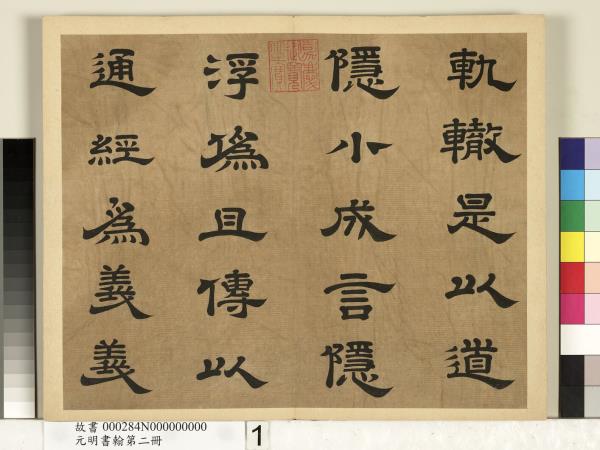 軌轍是以道
隱小成言隱
浮僞且傳以
通經爲義義
嘉慶御覽之寶
故書 000284N000000000
元明書翰第二冊
1